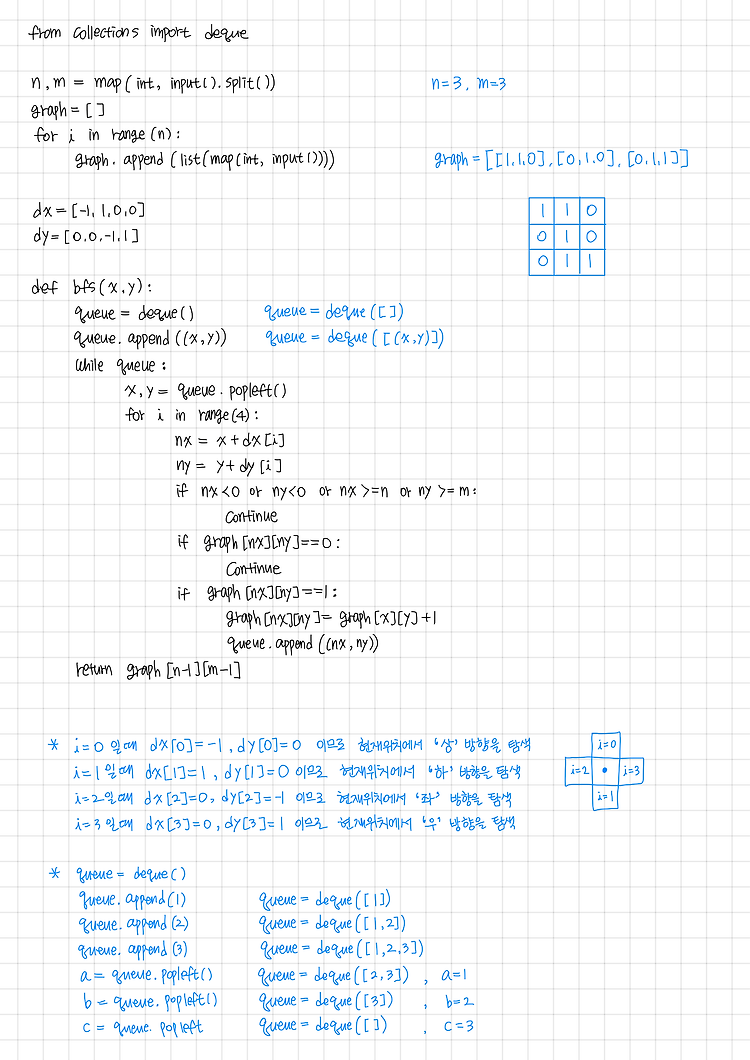 from collections import deque
n, m = map(int, input().split()) n=3, m=3
graph = []
for i in range(n):
graph.append(list(map(int, input()))) graph = [[1,1,0],[0,1,0],[0,1,1]]
dx = [-1, 1, 0, 0]
dy = [0, 0, -1, 1]
1 1 0
0 1 0
0 1 1
def bfs(x,y):
queue = deque() queue = deque([])
queue.append((x,y)) queue = deque([(x,y)])
while queue:
x, y = queue.popleft()
for i in range(4):
nx = x+dx[i]
ny = y+dy[i]
if nx<0 or ny<0 or nx>=n or ny>=m:
continue
if graph[nx][ny]==0:
continue
if graph[nx][ny]==1:
graph[nx][ny]= graph[x][y]+1
queue.append((nx, ny))
return graph[n-1][m-1]
* i=0일때 dx[0]=-1, dy[0]=0 이므로 현재위치에서 '상' 방향을 탐색
i=1일때 dx[1]=1, dy[1]=0 이므로 현재위치에서 '하' 방향을 탐색
i=2일때 dx[2]=0, dy[2]=-1 이므로 현재위치에서 '좌' 방향을 탐색
i=3일때 dx[3]=0, dy[3]=1 이므로 현재위치에서 '우' 방향을 탐색
i=0
i=2 i=3
i=1
* queue = deque()
queue.append(1) queue = deque([1])
queue.append(2) queue = deque([1,2])
queue.append(3) queue = deque([1,2,3])
a = queue.popleft() queue = deque([2,3]) , a=1
b = queue.popleft() queue = deque([3]) , b=2
c = queue.popleft queue = deque([]) , c=3